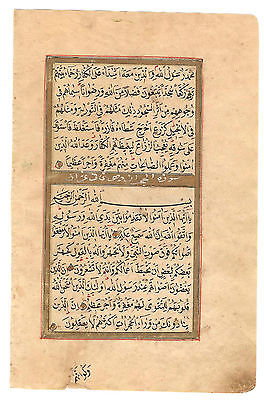 محمد رسول الله والذين معه اشداء على الكفار رحماء بينهم
تراهم ركعا سجدا يبتغون فضلا من الله ورضوانا سيماهم في
وجوههم من اثر السجود ذلك مثلهم في التورية ومثلهم
في الانجيل كزرع اخرج شطأه فآزره فاستغلظ فاستوى
على سوقه يعجب الزراع ليغيظ بهم الكفار وعد الله الذين
آمنوا وعملوا الصالحات منهم مغفرة واجرا عظيما
سورة الحجرات
بسم الله الرحمن الرحيم
يا ايها الذين آمنوا لا تقدموا بين يدي الله ورسوله و
اتقوا الله ان الله سميع عليم يا ايها الذين آمنوا لا ترفعوا
اصواتكم فوق صوت النبي ولا تجهروا له بالقول كجهر
بعضكم لبعض ان تحبط اعمالكم وانتم لا تشعرون ان الذين
يغضون اصواتهم عند رسول الله اولئك الذين امتحن الله
قلوبهم للتقوى لهم مغفرة واجر عظيم ان الذين
ينادونك من وراء الحجرات اكثرهم لا يعقلون
ولو انهم